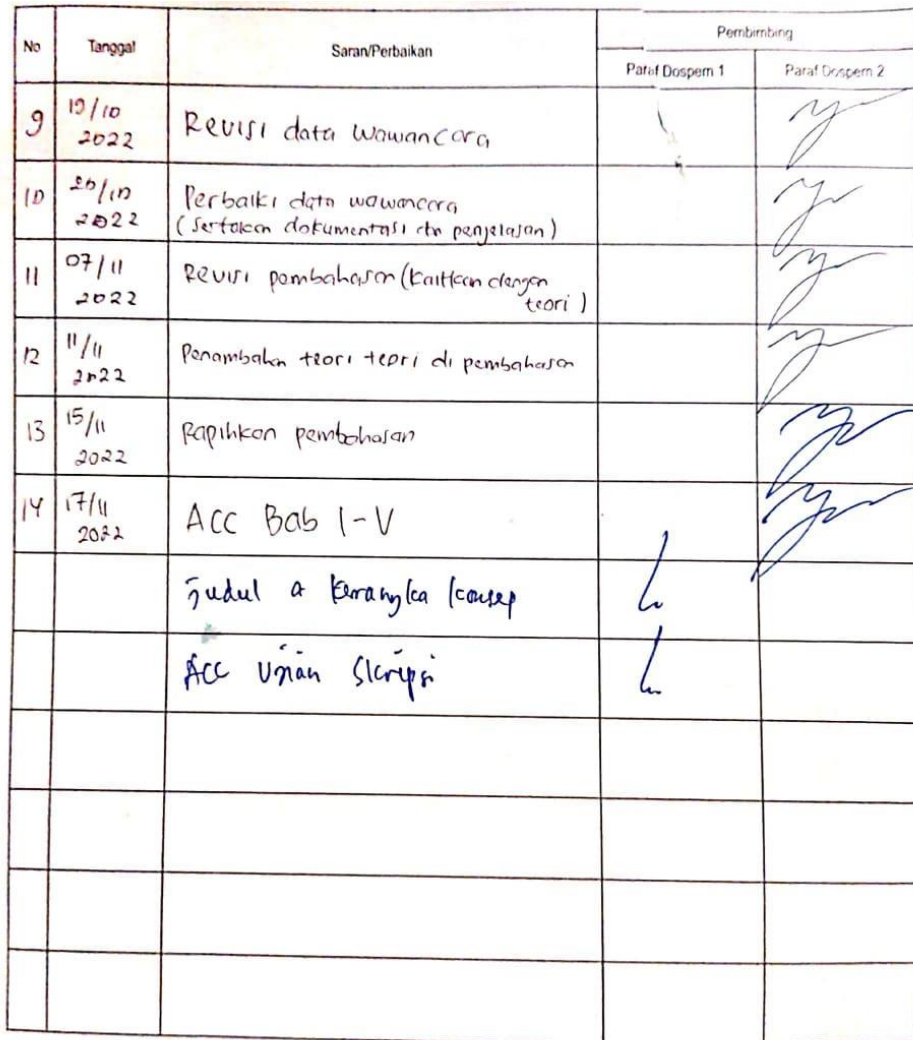 No Tanggal Saran/Perbaikan Pembimbing
Paraf Dospem 1 Paraf Dospem 2
9 19/10 2022 Revisi data wawancara
10 26/10 2022 Perbaiki data wawancara
(sertakan dokumentasi dn penjelasan)
11 07/11 2022 Revisi pembahasan (kaitkan dengan
teori)
12 11/11 2022 Penambahn teori teori di pembahasan
13 15/11 2022 Rapihkan pembahasan
14 17/11 2022 ACC Bab I-V
Judul & Kerangka konsep
ACC Ujian Skripsi